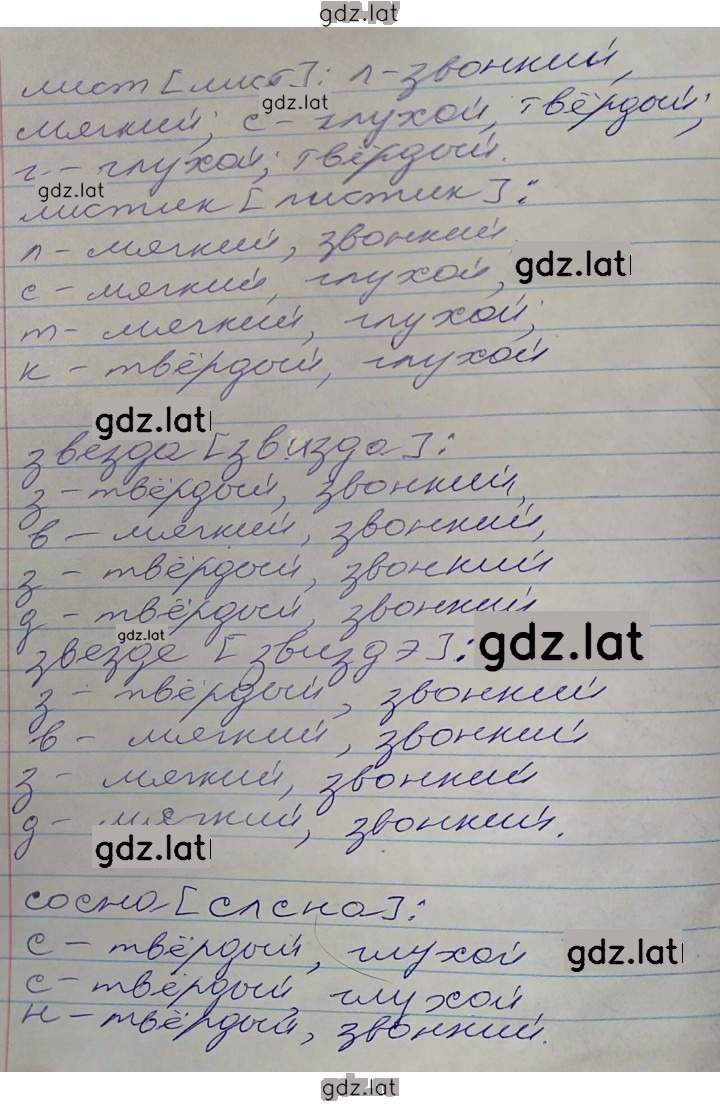 gdz.lat
лист [лист]: л-звонкий,
gdz.lat
мягкий; с-глухой, твёрдый;
т-глухой; твёрдый.
gdz.lat
листик [листик]:
л-мягкий, звонкий
gdz.lat
с-мягкий, глухой,
т-мягкий, глухой;
к-твёрдый, глухой
gdz.lat
звезда [звизда]:
з-твёрдый, звонкий,
в-мягкий, звонкий,
з-твёрдый, звонкий
д-твёрдый, звонкий
gdz.lat
звезде [звиздэ]:
gdz.lat
з-твёрдый, звонкий
в-мягкий, звонкий
з-мягкий, звонкий
д-мягкий, звонкий.
gdz.lat
сосна [слсна]:
с-твёрдый, глухой
gdz.lat
с-твёрдый, глухой
н-твёрдый, звонкий.
gdz.lat